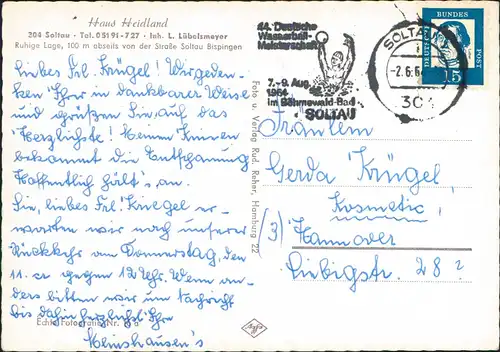 Haus Heidland
304 Soltau - Tel. 05191-727 - Inh. L. Lübelsmeyer
Ruhige Lage, 100 m abseits von der Straße Soltau Bispingen
Liebes Frl. Krügel! Wir geden-
ken Ihrer in dankbarer Weise
und grüßen Sie auf das
Herzlichste! Meinen
bekommt die Entspannung
Hoffentlich hält's an.
Sie, liebes Frl. Kriegel er-
warten wir nach unserer
Rückkehr am Donnerstag, den
11. cr gegen 12 Uhr. Wenn an-
ders bitten wir um Nachricht
bis dahin herzlichst Ihre
Meinshausen's
Echte Fotografie Nr.
Foto u. Verlag Rud. Reher, Hamburg 22
44. Deutsche
Wasserball-
Meisterschaft
7.-9. Aug.
1964
im Böhmewald-Bad
SOLTAU
SOLTAU
-2.6.6
304
DEUTSCHE
BUNDES
POST
15
Fräulein
Gerda Krügel
Kosmetic,
(3) Hannover
Liebigstr. 28 ?
Agfa